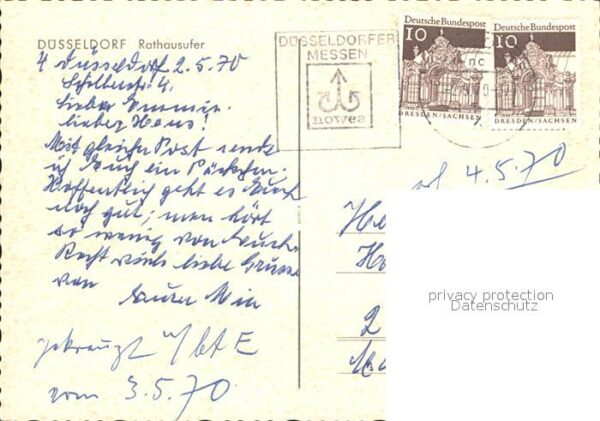 DÜSSELDORF Rathausufer
4 Düsseldorf 2.5.70
Lieber
lieber Hans!
Mit gleicher Post sende
ich Euch ein Päckchen.
Hoffentlich geht es Euch
noch gut; man hört
so wenig von Euch.
Recht viele liebe Grüsse
von
Eurer Mia
vom 3.5.70
DÜSSELDORFER
MESSEN
nowea
Deutsche Bundespost
10
DRESDEN/SACHSEN
Deutsche Bundespost
10
DRESDEN/SACHSEN
4.5.70
He
Ha
2
privacy protection
Datenschutz